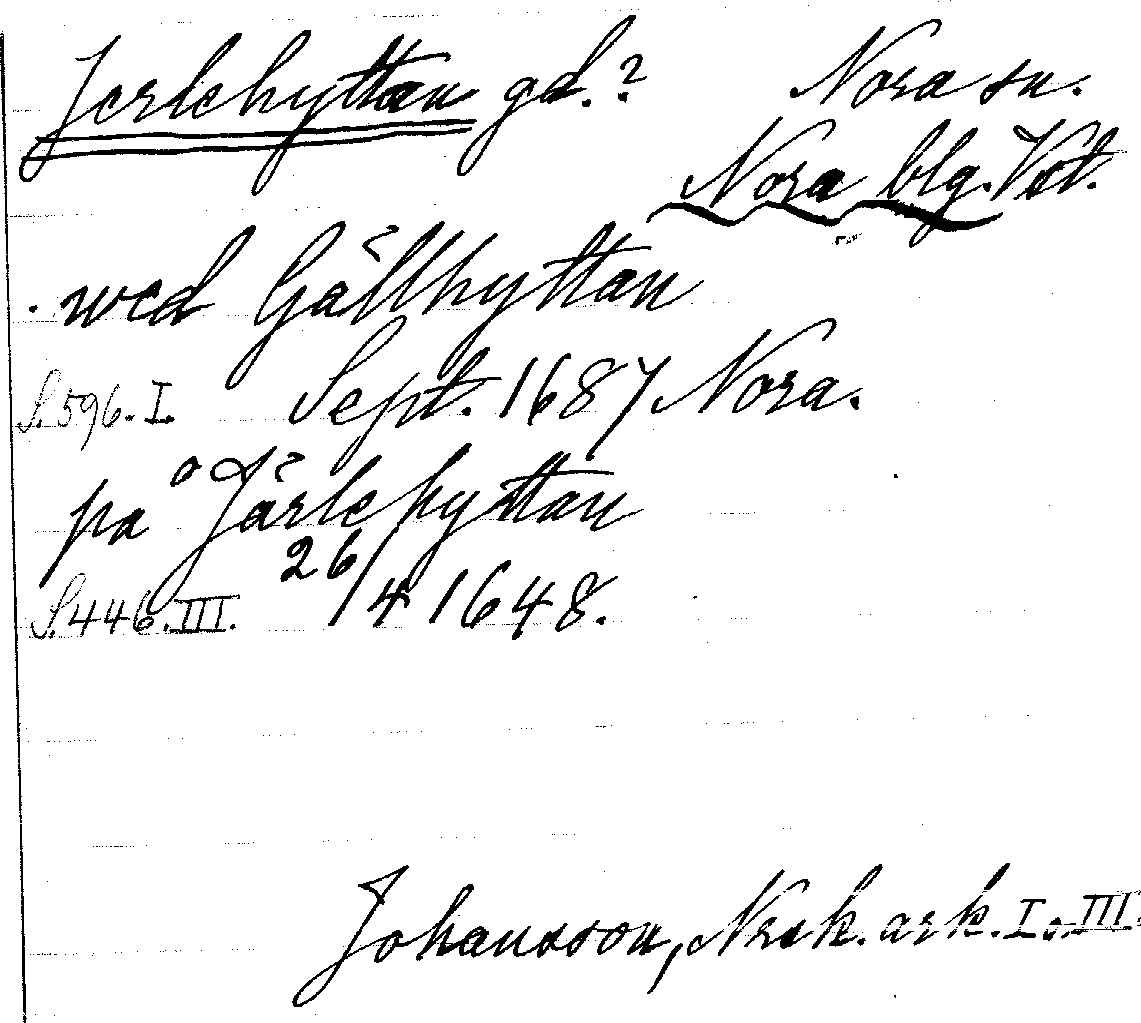 Jerlehyttan gd.? Nora sn.
Nora blg. Vst.
wed Gällhyttan
S. 596. I. Sept. 1687 Nora.
på Järlehyttan
S. 446. III. 26/4 1648.
Johansson, Nrsk. ark. I o. III.